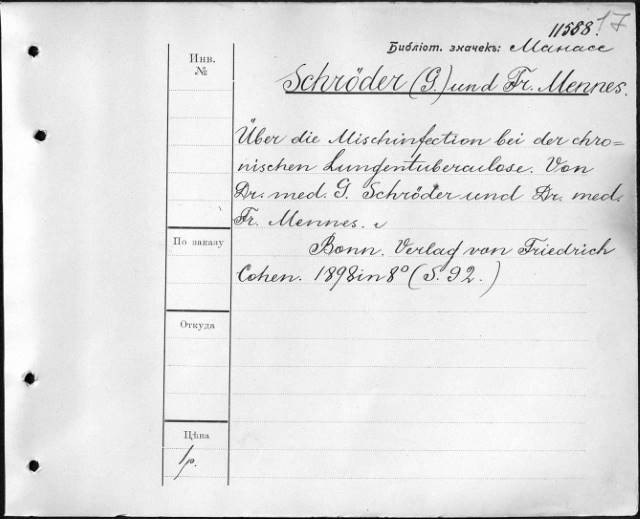 11588. 17
Библіот. значекъ: Манасе
Инв.
№
Schröder (G.) und Fr. Mennes.
Über die Mischinfection bei der chro=
nischen Lungentuberculose. Von
Dr. med. G. Schröder und Dr. med.
Fr. Mennes.
По заказу
Bonn. Verlag von Friedrich
Cohen. 1898 in 8° (S. 92.)
Откуда
Цѣна
1р.